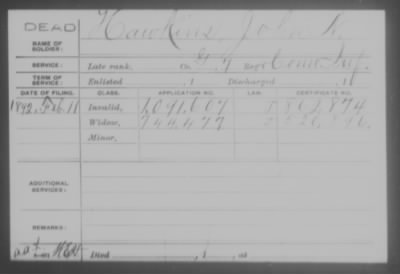 DEAD
Hawkins, John
NAME OF SOLDIER:
SERVICE: Late rank, Co. G, 7 Reg't Conn. Inf.
TERM OF SERVICE: Enlisted , 1 Discharged , 1
DATE OF FILING. CLASS. APPLICATION NO. LAW. CERTIFICATE NO.
1892, Feb. 11 Invalid, 1,091,607 802,874
Widow, 744,477
Minor,
ADDITIONAL SERVICES:
REMARKS:
Died , 1 , at